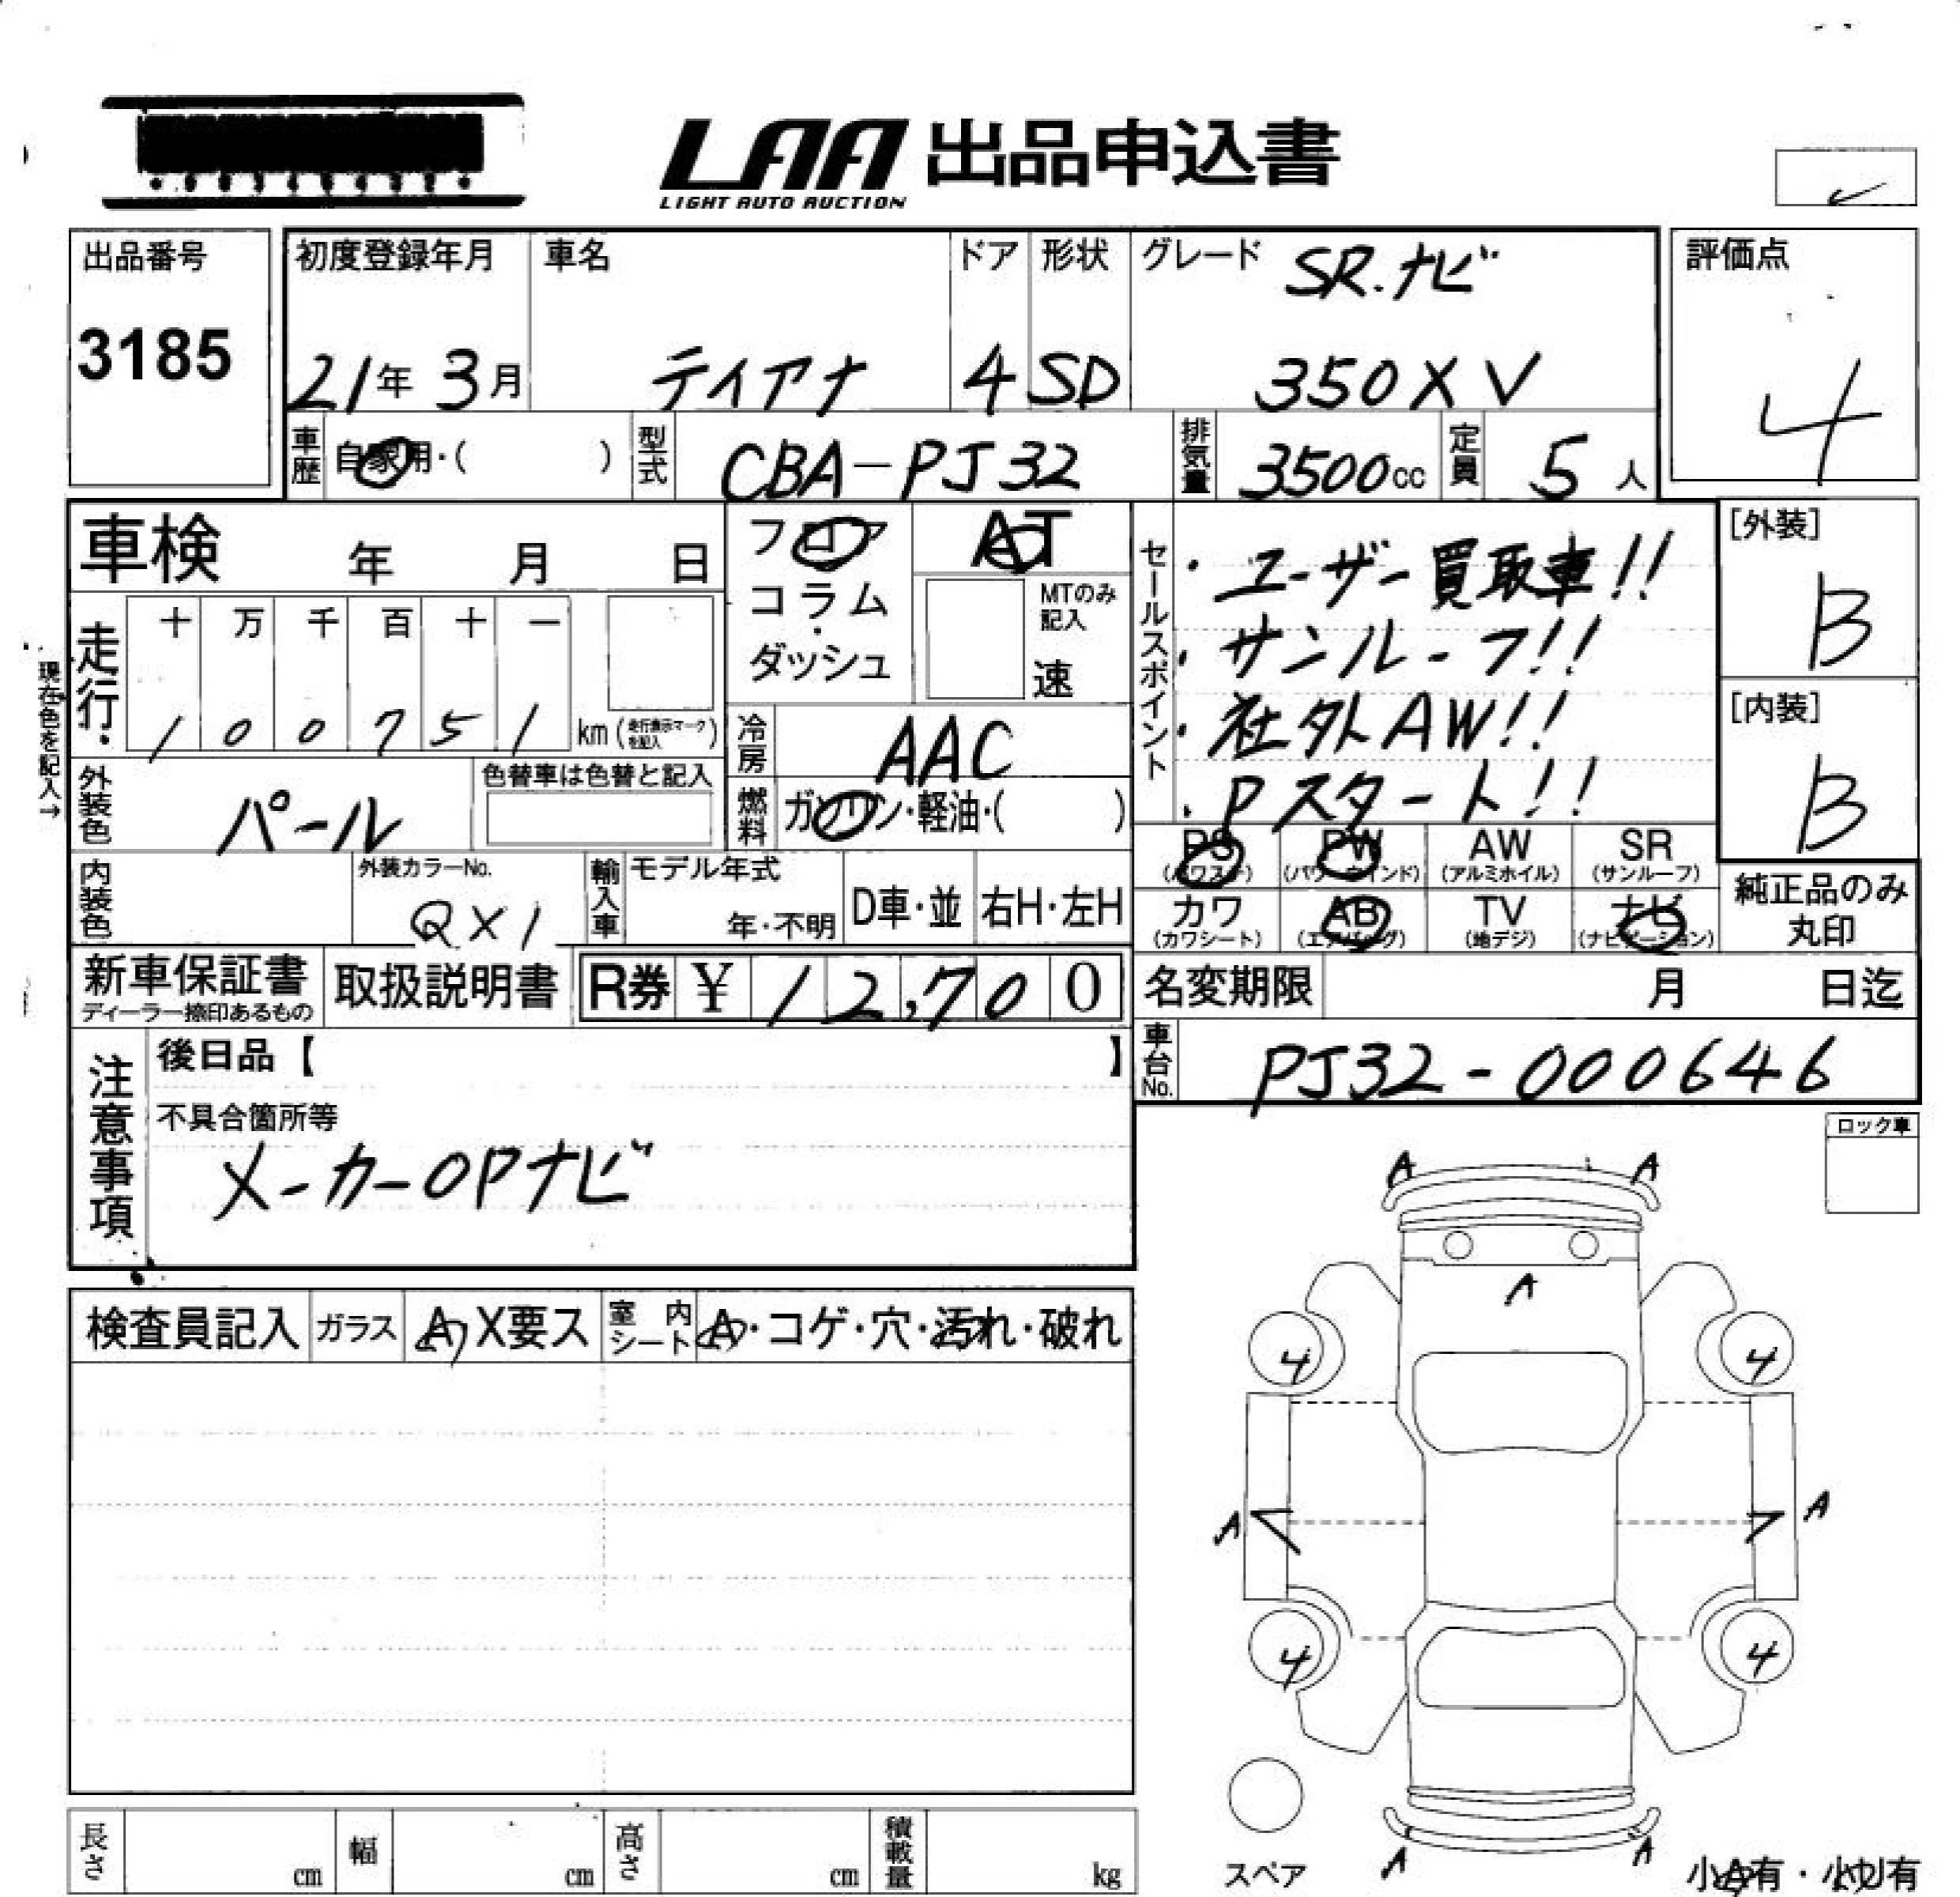 LAA 出品申込書
LIGHT AUTO AUCTION
出品番号
3185
初度登録年月 車名 ドア 形状 グレード SR.ナビ
21年 3月 ティアナ 4 SD 350XV
評価点
4
車歴 自家用・( ) 型式 CBA-PJ32 排気量 3500cc 定員 5人
車検 年 月 日
フロア
コラム・
ダッシュ
AT
MTのみ記入
速
セールスポイント
・ユーザー買取車!!
・サンルーフ!!
・社外AW!!
・Pスタート!!
[外装]
B
[内装]
B
現在色を記入→
走行
十 万 千 百 十 一
1 0 0 7 5 1 km (走行表示マークを記入)
冷房 AAC
外装色 パール 色替車は色替と記入
燃料 ガソリン・軽油・( )
PS (パワステ) PW (パワーウインド) AW (アルミホイル) SR (サンルーフ)
カワ (カワシート) AB (エアバッグ) TV (地デジ) ナビ (ナビゲーション)
純正品のみ
丸印
内装色 外装カラーNo. QX1 輸入車 モデル年式 年・不明 D車・並 右H・左H
新車保証書 ディーラー捺印あるもの 取扱説明書 R券 ¥ 12,700
名変期限 月 日迄
車台No. PJ32-000646
注意事項
後日品【 】
不具合箇所等
メーカーOPナビ
ロック車
検査員記入 ガラス A X要ス 室内シート A・コゲ・穴・汚れ・破れ
A A
A
4 4
A A
4 4
A A
スペア
小A有・小U有
長さ cm 幅 cm 高さ cm 積載量 kg